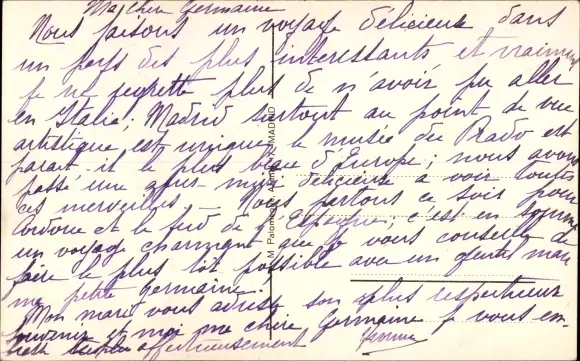 Ma chère Germaine
Nous faisons un voyage délicieux dans
un pays des plus interessants et vraiment
je ne regrette plus de n'avoir pu aller
en Italie; Madrid surtout au point de vue
artistique est unique, le musée du Prado est
parait-il le plus beau d'Europe; nous avons
passé une délicieuse a voir toutes
ces merveilles - Nous partons ce soir pour
Cordoue et le Sud de l'Espagne; c'est en somme
un voyage charmant que je vous conseille de
faire le plus tôt possible avec un gentil mari
ma petite Germaine.
Mon mari vous adresse son plus respectueux
souvenir et moi ma chère Germaine je vous em-
affectueusement
MADRID